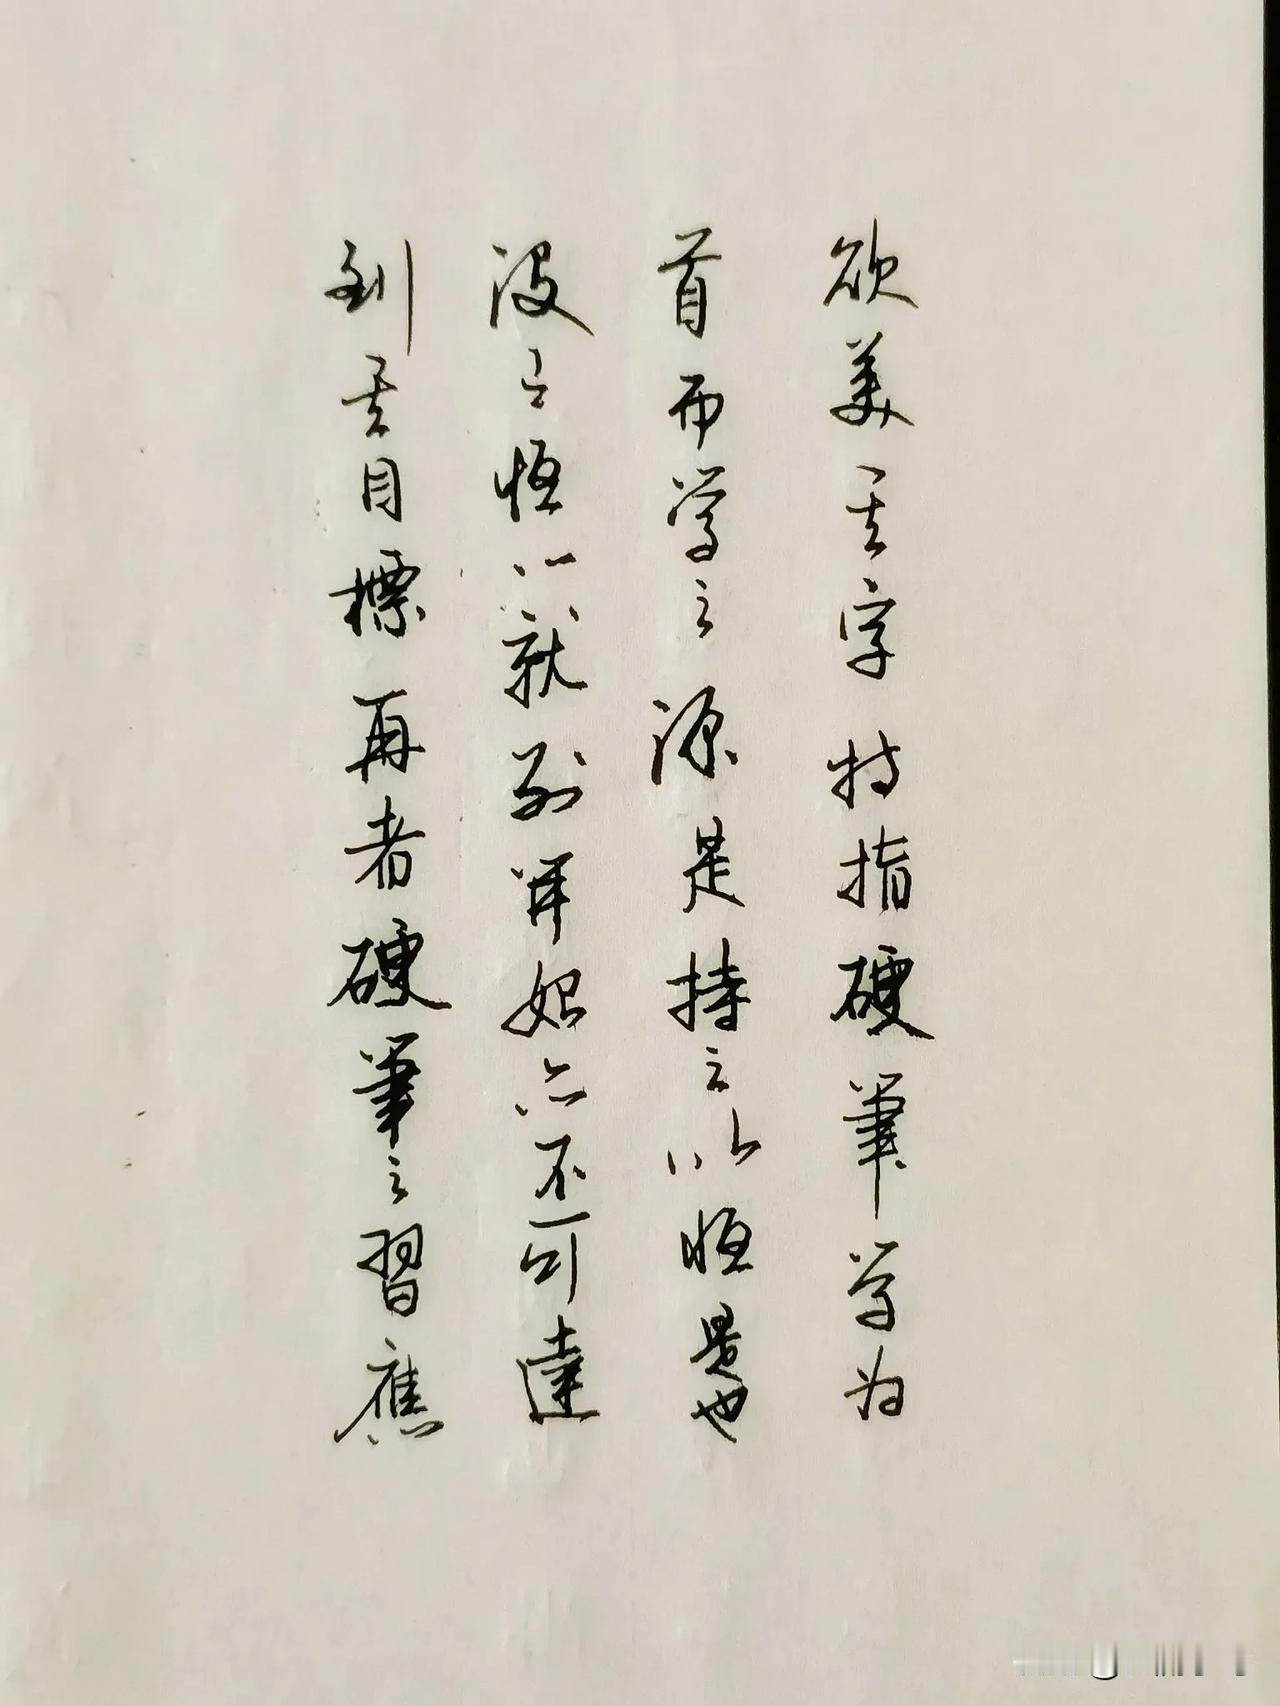 欲美其字特指硬筆学为
首而学之源是持之以恒是也
没之恒心就列算始亦不可達
到其目標再者硬筆之習應